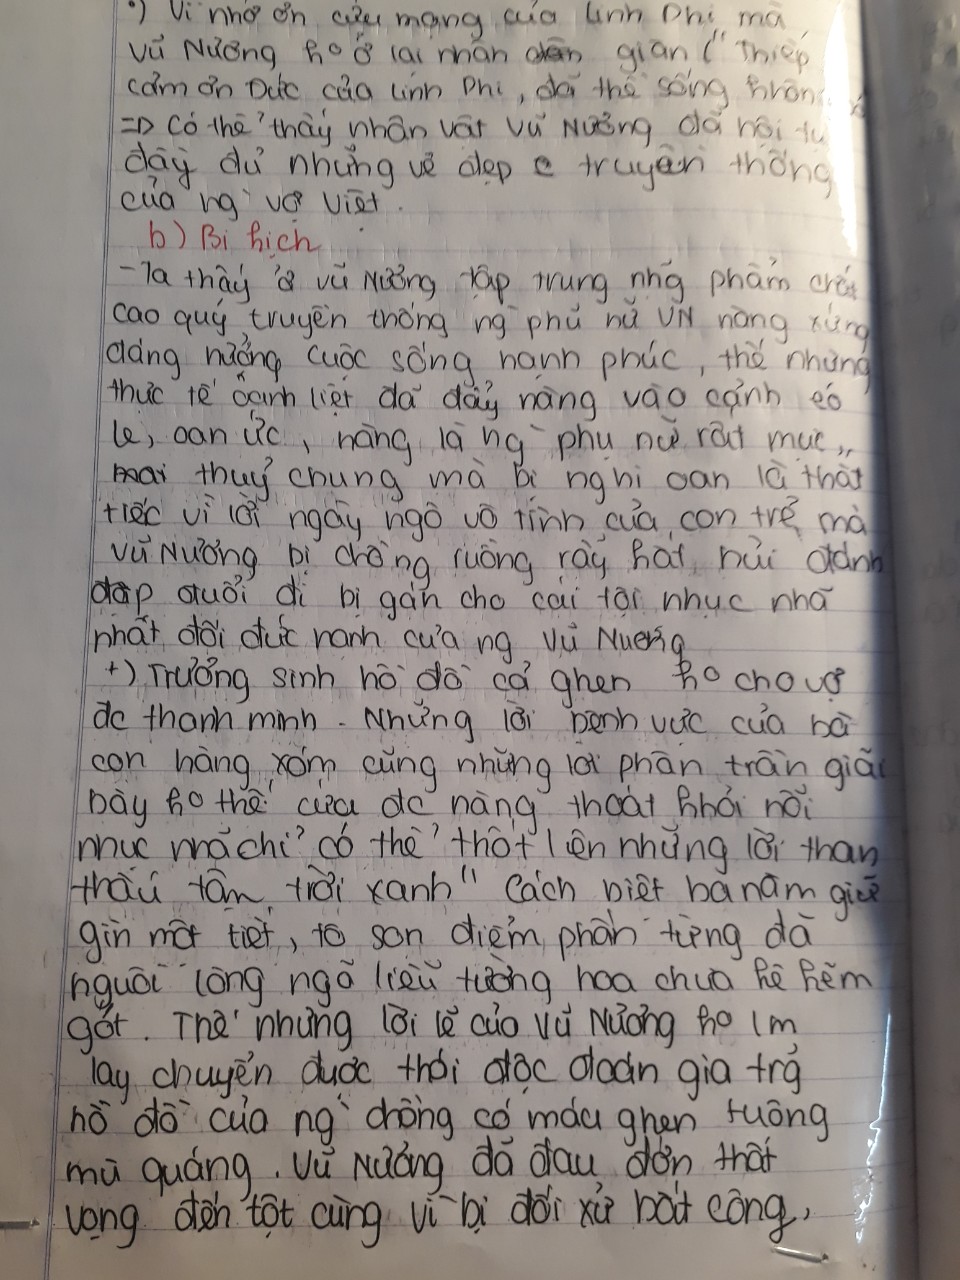 •) Vì nhớ ơn cứu mạng của Linh Phi mà
Vũ Nương ko ở lại nhân dân gian (" Thiếp
cảm ơn Đức của Linh Phi, đã thề sống
=> Có thể thấy nhân vật Vũ Nương đã hội tụ
đầy đủ những vẻ đẹp truyền thống
của ng` vợ Việt.
b) Bi kịch
- Ta thấy ở Vũ Nương tập trung nhg phẩm chất
cao quý truyền thống ng` phụ nữ VN nàng xứng
đáng hưởng cuộc sống hạnh phúc, thế nhưng
thực tế liệt đã đẩy nàng vào cảnh éo
le, oan ức, nàng là ng` phụ nữ rất mực,,
thuỷ chung mà bị nghi oan là thất
tiếc vì lời ngây ngô vô tình của con trẻ mà
Vũ Nương bị chồng ruồng rẫy hắt hủi đánh
đập đuổi đi bị gán cho cái tội nhục nhã
nhất đối đức hạnh của ng Vũ Nương
+) Trương Sinh hồ đồ cả ghen ko cho vợ
đc thanh minh - Những lời bênh vực của bà
con hàng xóm cũng những lời phân trần giãi
bày ko thể cứu đc nàng thoát khỏi nỗi
nhục nhã chỉ có thể thốt lên những lời than
thấu tận trời xanh " Cách biệt ba năm giữ
gìn một tiết, tô son điểm phấn từng đã
nguôi lòng ngõ liễu tường hoa chưa hề bén
gót. Thế nhưng lời lẽ của Vũ Nương ko lm
lay chuyển được thói độc đoán gia trg
hồ đồ của ng` chồng có máu ghen tuông
mù quáng. Vũ Nương đã đau đớn thất
vọng đến tột cùng vì bị đối xử bất công,